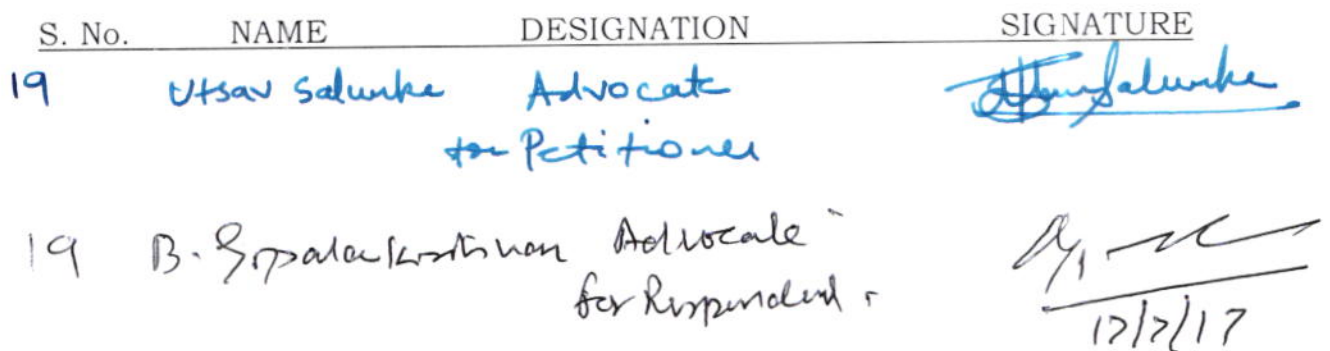 S. No. NAME DESIGNATION SIGNATURE
19 Utsav Salunke Advocate Salunke
for Petitioner
19 B. Gopalakrishnan Advocate
for Respondent.
17/7/17